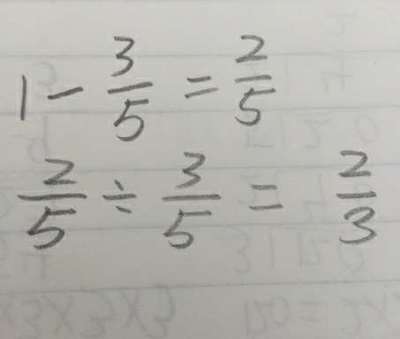 1 - 3/5 = 2/5
2/5 ÷ 3/5 = 2/3